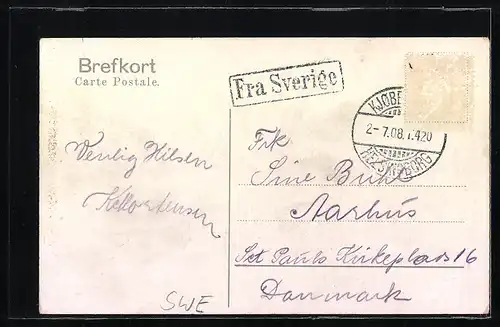 Brefkort
Carte Postale.
Fra Sverige
KJØBE
2-7.08.1.420
HELSINGBORG
Venlig Hilsen
K Mortensen
Frk
Sine Buhl
Aarhus
Sct Pauls Kirkeplads 16
Danmark
SWE